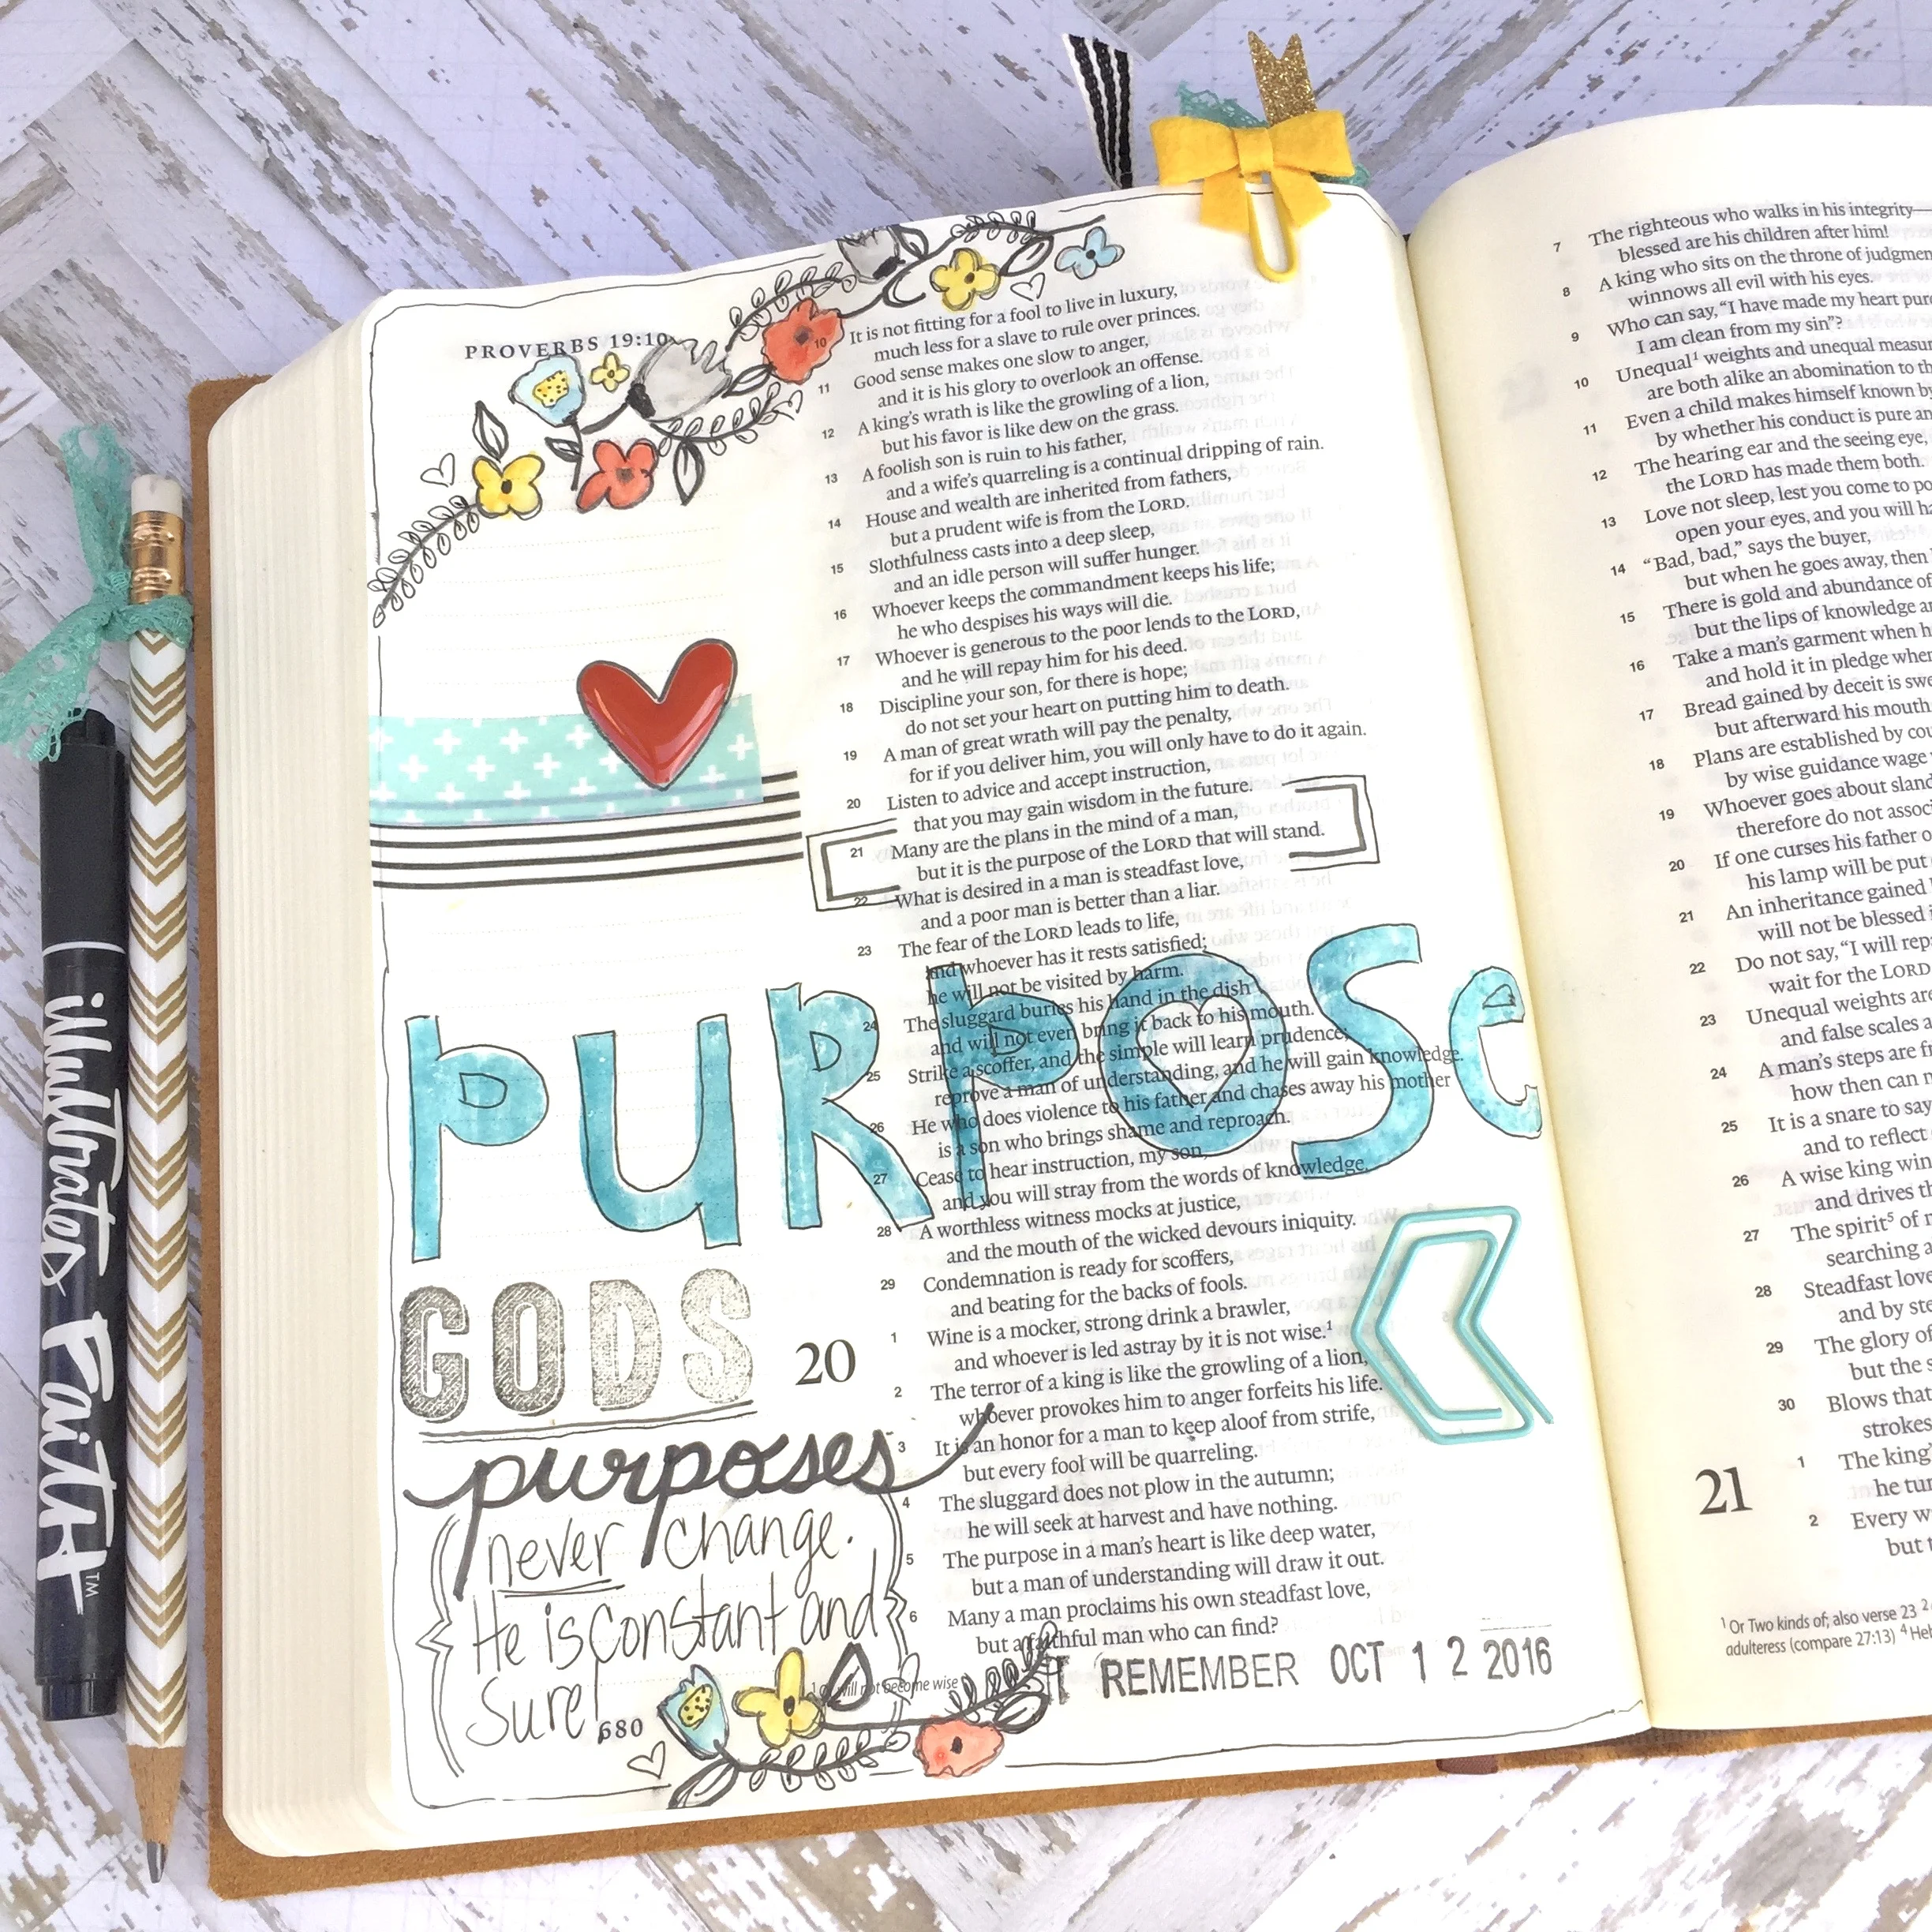 PROVERBS 19:10
10 It is not fitting for a fool to live in luxury,
much less for a slave to rule over princes.
11 Good sense makes one slow to anger,
and it is his glory to overlook an offense.
12 A king's wrath is like the growling of a lion,
but his favor is like dew on the grass.
13 A foolish son is ruin to his father,
and a wife's quarreling is a continual dripping of rain.
14 House and wealth are inherited from fathers,
but a prudent wife is from the LORD.
15 Slothfulness casts into a deep sleep,
and an idle person will suffer hunger.
16 Whoever keeps the commandment keeps his life;
he who despises his ways will die.
17 Whoever is generous to the poor lends to the LORD,
and he will repay him for his deed.
18 Discipline your son, for there is hope;
do not set your heart on putting him to death.
19 A man of great wrath will pay the penalty,
for if you deliver him, you will only have to do it again.
20 Listen to advice and accept instruction,
that you may gain wisdom in the future.
21 Many are the plans in the mind of a man,
but it is the purpose of the LORD that will stand.
22 What is desired in a man is steadfast love,
and a poor man is better than a liar.
23 The fear of the LORD leads to life,
and whoever has it rests satisfied;
he will not be visited by harm.
24 The sluggard buries his hand in the dish
and will not even bring it back to his mouth.
25 Strike a scoffer, and the simple will learn prudence;
reprove a man of understanding, and he will gain knowledge.
26 He who does violence to his father and chases away his mother
is a son who brings shame and reproach.
27 Cease to hear instruction, my son,
and you will stray from the words of knowledge.
28 A worthless witness mocks at justice,
and the mouth of the wicked devours iniquity.
29 Condemnation is ready for scoffers,
and beating for the backs of fools.
20
1 Wine is a mocker, strong drink a brawler,
and whoever is led astray by it is not wise.1
2 The terror of a king is like the growling of a lion;
whoever provokes him to anger forfeits his life.
3 It is an honor for a man to keep aloof from strife,
but every fool will be quarreling.
4 The sluggard does not plow in the autumn;
he will seek at harvest and have nothing.
5 The purpose in a man's heart is like deep water,
but a man of understanding will draw it out.
6 Many a man proclaims his own steadfast love,
but a faithful man who can find?
will not become wise
680
PURPOSe
GODS
purposes
never change.
He is constant and
sure!
REMEMBER OCT 1 2 2016
7 The righteous who walks in his integrity—
blessed are his children after him!
8 A king who sits on the throne of judgmen
winnows all evil with his eyes.
9 Who can say, "I have made my heart pur
I am clean from my sin"?
10 Unequal1 weights and unequal measur
are both alike an abomination to th
11 Even a child makes himself known by
by whether his conduct is pure an
12 The hearing ear and the seeing eye,
the LORD has made them both.
13 Love not sleep, lest you come to po
open your eyes, and you will ha
14 "Bad, bad," says the buyer,
but when he goes away, then
15 There is gold and abundance of
but the lips of knowledge a
16 Take a man's garment when h
and hold it in pledge when
17 Bread gained by deceit is swe
but afterward his mouth
18 Plans are established by cou
by wise guidance wage
19 Whoever goes about sland
therefore do not assoc
20 If one curses his father o
his lamp will be put
21 An inheritance gained
will not be blessed i
22 Do not say, "I will rep
wait for the LORD
23 Unequal weights are
and false scales a
24 A man's steps are fr
how then can m
25 It is a snare to say
and to reflect
26 A wise king win
and drives th
27 The spirit5 of m
searching a
28 Steadfast love
and by ste
29 The glory of
but the s
30 Blows that
strokes
21
1 The king'
he tur
2 Every w
but t
1 Or Two kinds of; also verse 23 2
adulteress (compare 27:13) 4 Heb
illustrated Faith™